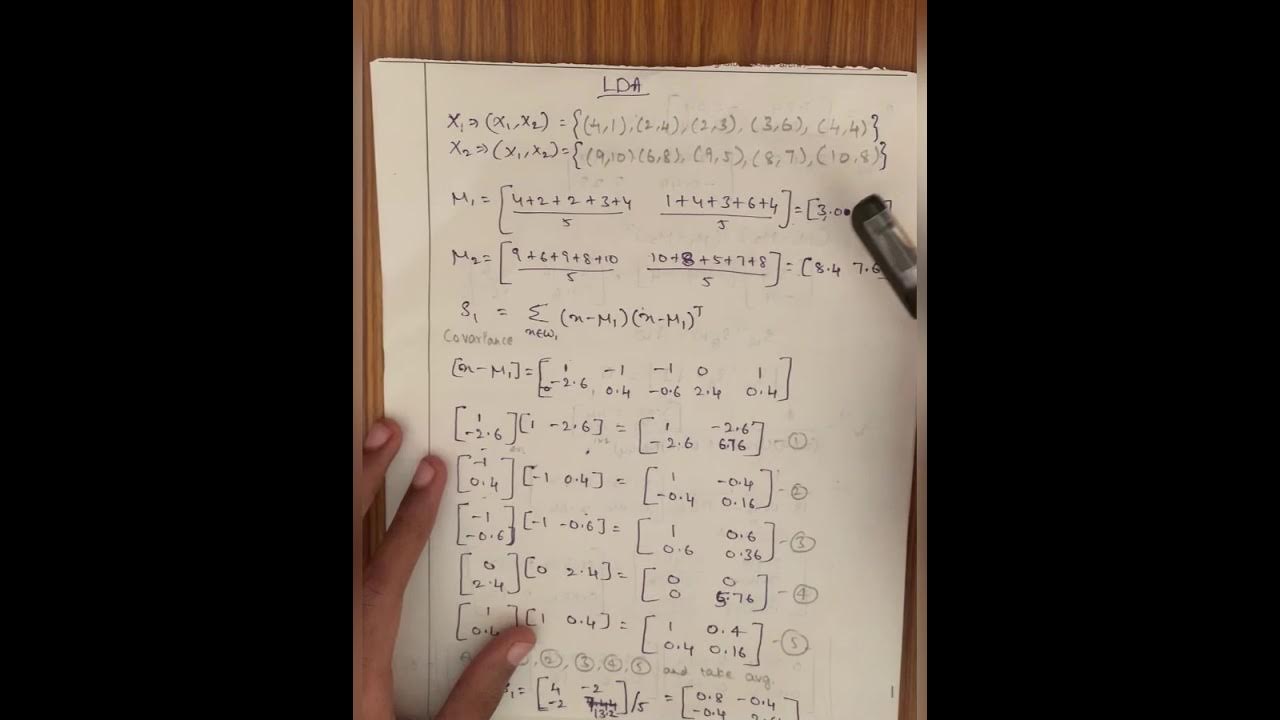 LDA
X₁ ⇒ (x₁, x₂) = {(4,1), (2,4), (2,3), (3,6), (4,4)}
X₂ ⇒ (x₁, x₂) = {(9,10) (6,8), (9,5), (8,7), (10,8)}
M₁ = [4+2+2+3+4/5 1+4+3+6+4/5] = [3.0
M₂ = [9+6+9+8+10/5 10+8+5+7+8/5] = [8.4 7.6
S₁ = Σ x∈ω₁ (x-M₁)(x-M₁)ᵀ
Covariance
[x-M₁] = [1 -1 -1 0 1
-2.6, 0.4 -0.6 2.4 0.4]
[1 -2.6] [1 -2.6] = [1 -2.6
-2.6 6.76] - ①
[-1 0.4] [-1 0.4] = [1 -0.4
-0.4 0.16] - ②
[-1 -0.6] [-1 -0.6] = [1 0.6
0.6 0.36] - ③
[0 2.4] [0 2.4] = [0 0
0 5.76] - ④
[1 0.4] [1 0.4] = [1 0.4
0.4 0.16] - ⑤
, ②, ③, ④, ⑤ and take avg.
S₁ = [4 -2
-2 13.2] /5 = [0.8 -0.4
-0.4